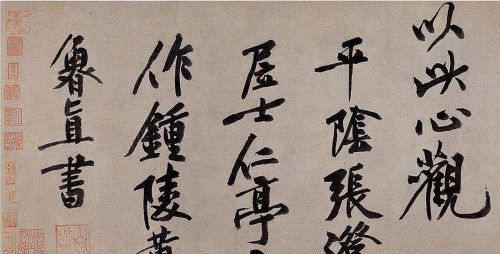 以此心觀
平陰張澄
居士仁亭
作鍾陵黄
魯直書